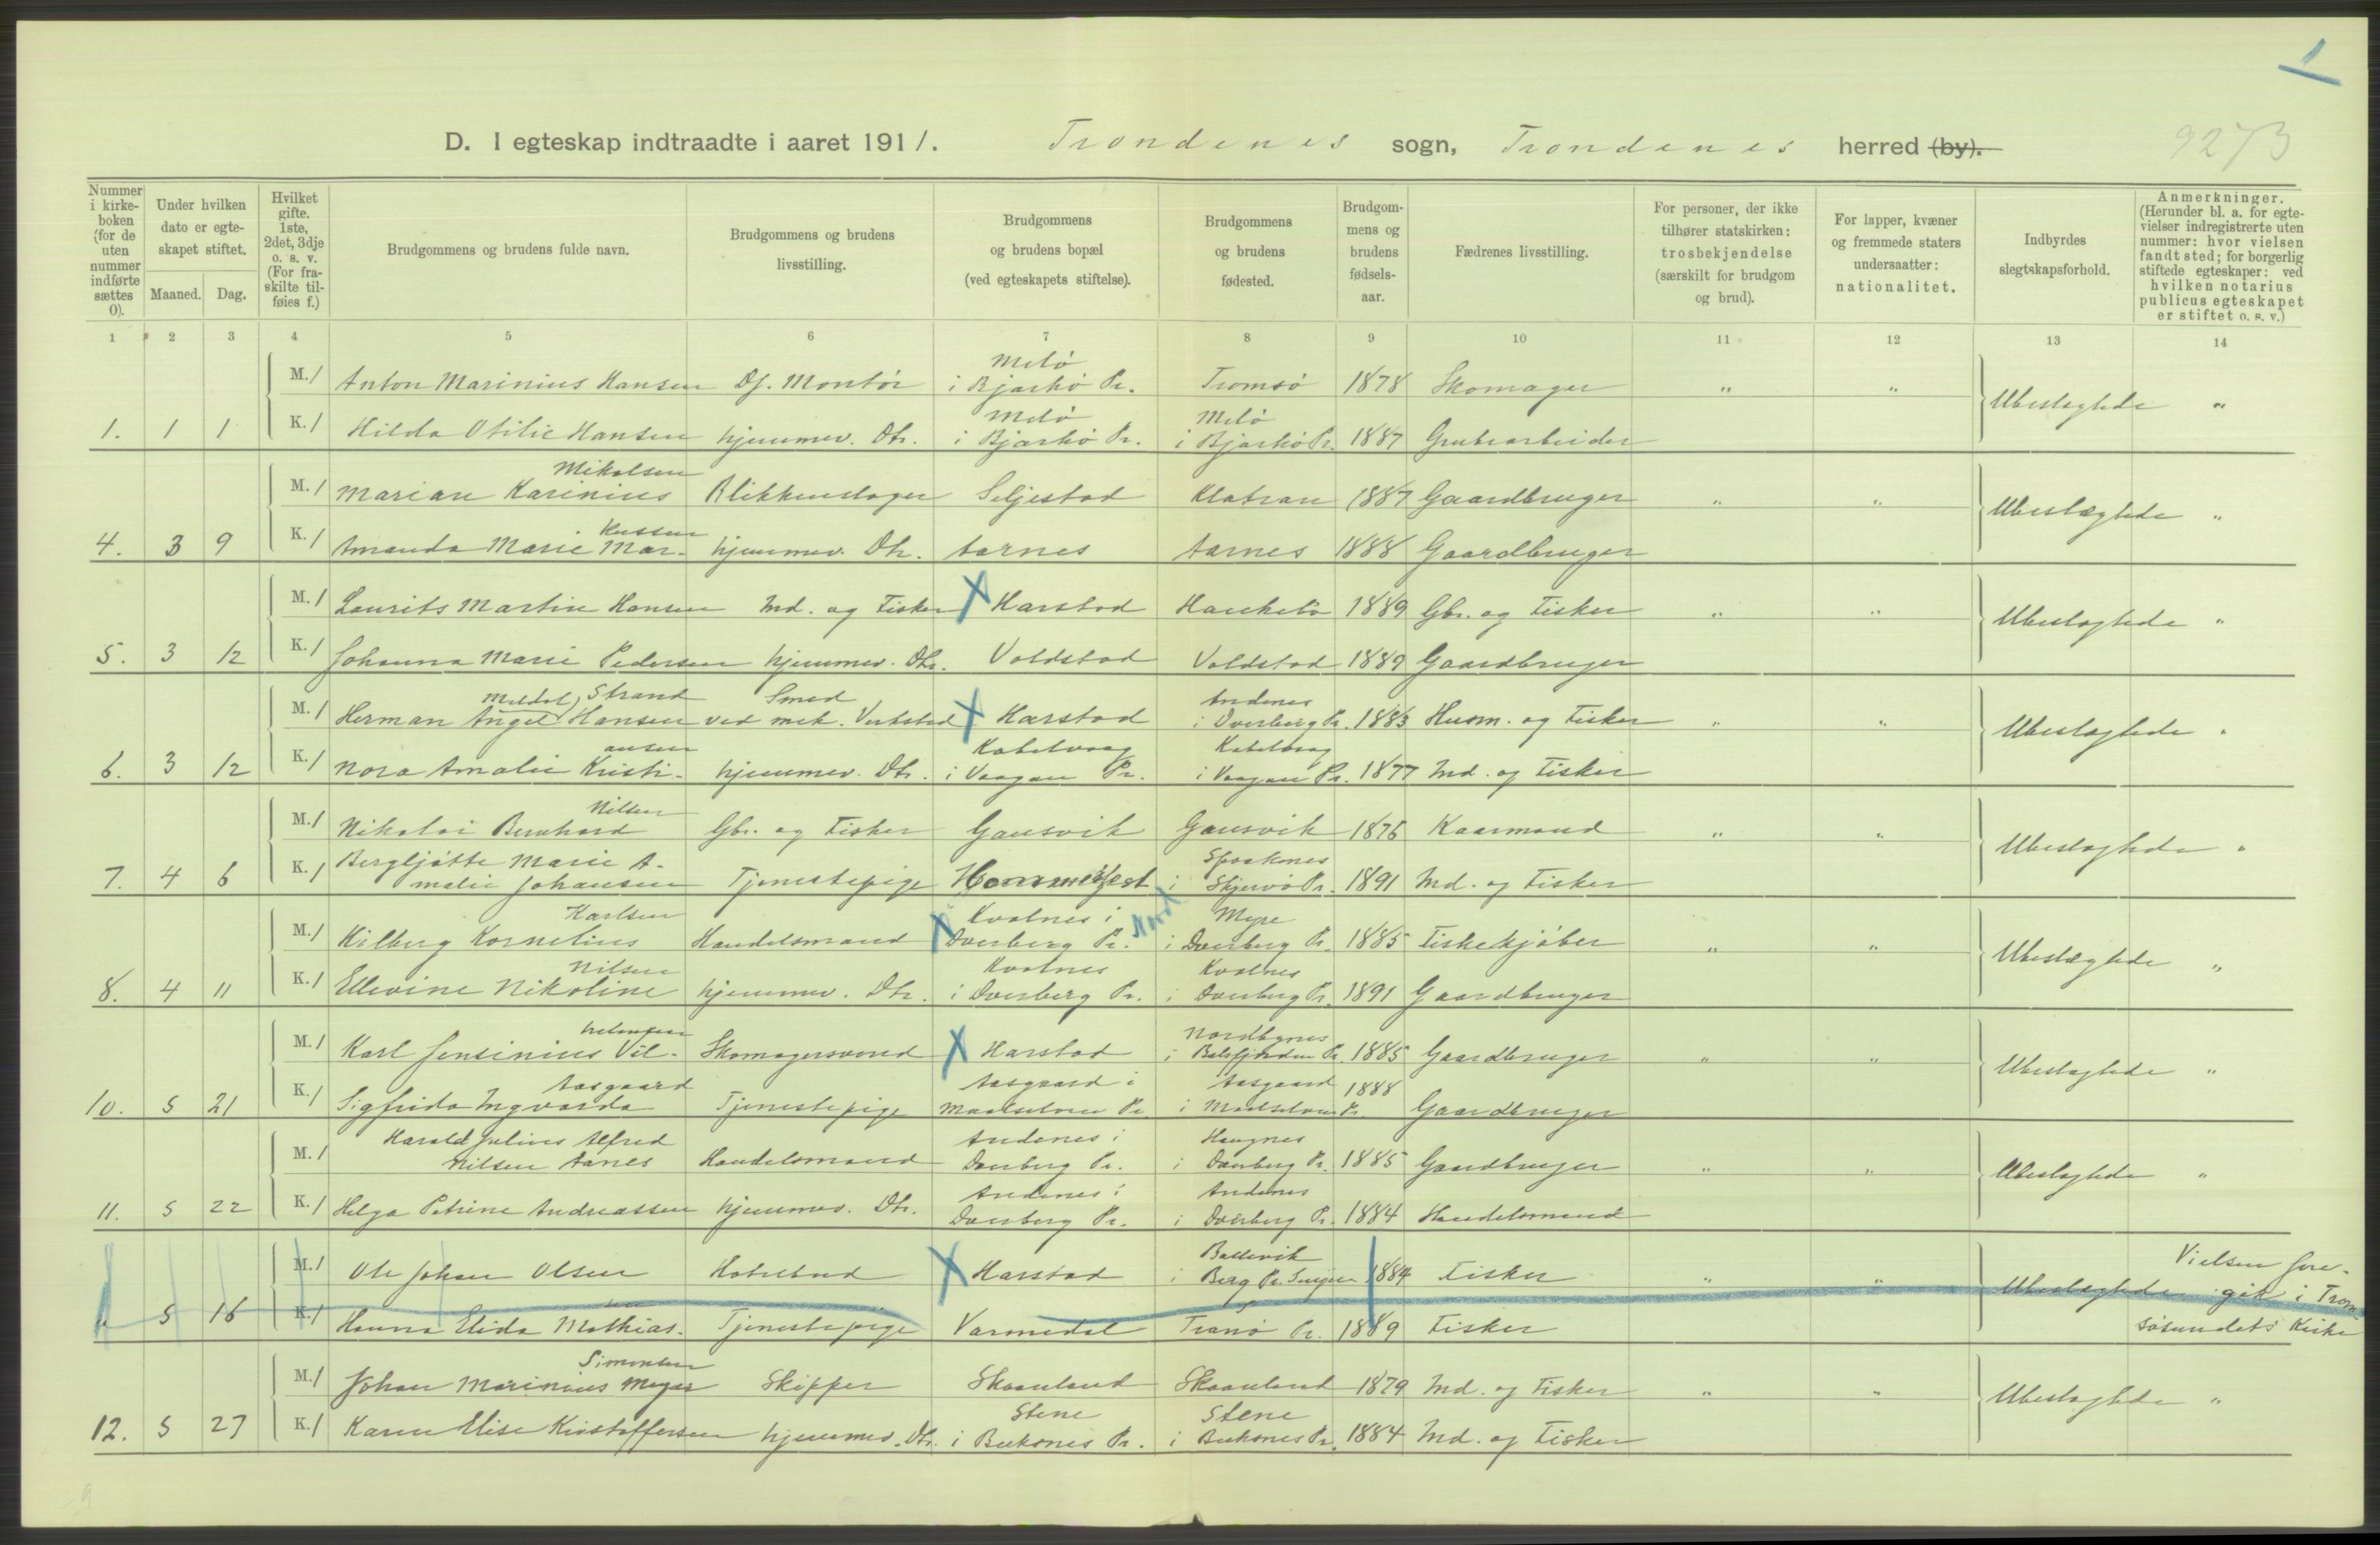 1
D. I egteskap indtraadte i aaret 1911. Trondenes sogn, Trondenes herred (by). 9273
Nummer i kirkeboken (for de uten nummer indførte sættes 0).
Under hvilken dato er egteskapet stiftet.
Maaned. Dag.
Hvilket gifte. 1ste, 2det, 3dje o. s. v. (For fraskilte tilføies f.)
Brudgommens og brudens fulde navn.
Brudgommens og brudens livsstilling.
Brudgommens og brudens bopæl (ved egteskapets stiftelse).
Brudgommens og brudens fødested.
Brudgommens og brudens fødselsaar.
Fædrenes livsstilling.
For personer, der ikke tilhører statskirken: trosbekjendelse (særskilt for brudgom og brud).
For lapper, kvæner og fremmede staters undersaatter: nationalitet.
Indbyrdes slegtskapsforhold.
Anmerkninger. (Herunder bl. a. for egtevielser indregistrerte uten nummer: hvor vielsen fandt sted; for borgerlig stiftede egteskaper: ved hvilken notarius publicus egteskapet er stiftet o. s. v.)
1 2 3 4 5 6 7 8 9 10 11 12 13 14
Melø
M. 1 Anton Marinius Hansen Df. Montør i Bjarkø Pr. Tromsø 1878 Skomager " " Ubeslegtede "
Melø Melø
1. 1 1 K. 1 Hilda Otilie Hansen hjemmev. Dtr. i Bjarkø Pr. i Bjarkø Pr. 1887 Grubearbeider
Mikalsen
M. 1 Marian Karinius Blikkenslager Seljestad Klatran 1887 Gaardbruger " " Ubeslægtede "
4. 3 9 K. 1 Amanda Marie Mar- hjemmev. Dtr. Aarnes Aarnes 1888 Gaardbruger
M. 1 Laurits Martin Hansen Ind. og Fisker X Harstad 1889 Gbr. og Fisker " " Ubeslegtede "
5. 3 12 K. 1 Johanna Marie Pedersen hjemmev. Dtr. Voldstad Voldstad 1889 Gaardbruger
Meldal, Strand Smed Andenes
M. 1 Herman Angel Hansen ved mek. Verksted X Harstad i Dverberg Pr. 1883 Husm. og Fisker " " Ubeslegtede "
ansen Kabelvaag Kabelvaag
6. 3 12 K. 1 Nora Amalie Kristi- hjemmev. Dtr. i Vaagan Pr. i Vaagan Pr. 1877 Ind. og Fisker
Nilsen
M. 1 Nikolai Bernhard Gbr. og Fisker Gausvik Gausvik 1876 Kaarmand " " Ubeslegtede "
Bergljøtte Marie A- Spaaknes
7. 4 6 K. 1 malie Johansen Tjenestepige Hammerfest i Skjervø Pr. 1891 Ind. og Fisker
Karlsen Kvalnes i Myre
M. 1 Hilberg Kornelius Handelsmand X Dverberg Pr. i Dverberg Pr. 1885 Fiskekjøber " " Ubeslægtede "
Nilsen Kvalnes Kvalnes
8. 4 11 K. 1 Ellevine Nikoline hjemmev. Dtr. i Dverberg Pr. i Dverberg Pr. 1891 Gaardbruger
helmsen Nordbynes
M. 1 Karl Jensinius Vil- Skomagersvend X Harstad i Balsfjorden Pr. 1885 Gaardbruger " " Ubeslegtede "
Aasgaard Aasgaard i Aasgaard
10. 5 21 K. 1 Sigfrida Ingvarda Tjenestepige Maalselven Pr. i Maalselven Pr. 1888 Gaardbruger
Harald Julius Alfred Andenes i Haugnes
M. 1 Nilsen Aanes Handelsmand Dverberg Pr. i Dverberg Pr. 1885 Gaardbruger " " Ubeslegtede "
Andenes i Andenes
11. 5 22 K. 1 Helga Petrine Andreassen hjemmev. Dtr. Dverberg Pr. i Dverberg Pr. 1884 Handelsmand
Ballesvik Vielsen fore-
M. 1 Ole Johan Olsen Hotelbud X Harstad i Berg Pr. Senjen 1884 Fisker " " Ubeslægtede gik i Trom-
" 5 16 K. 1 Hanna Elida Mathias- Tjenestepige Varmedal Tranø Pr. 1889 Fisker søsundets Kirke
Simonsen
M. 1 Johan Marinius Meyer Skipper Skaanland Skaanland 1879 Ind. og Fisker " " Ubeslegtede "
Stene Stene
12. 5 27 K. 1 Karen Elise Kristoffersen hjemmev. Dtr. i Buksnes Pr. i Buksnes Pr. 1884 Ind. og Fisker